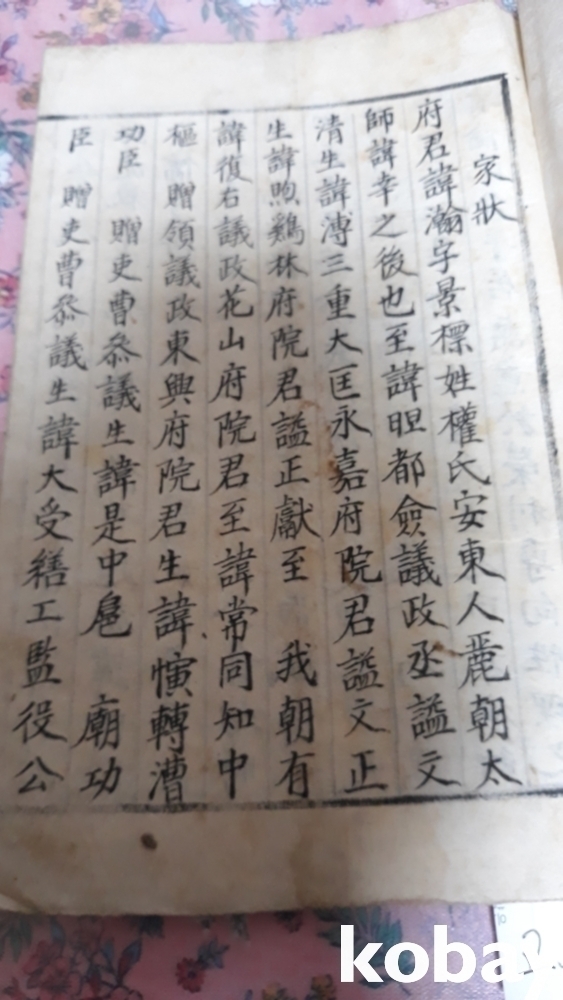 家狀
府君諱瀚字景標姓權氏安東人麗朝太
師諱幸之後也至諱㫜都僉議政丞謚文
清生諱溥三重大匡永嘉府院君謚文正
生諱煦鷄林府院君謚正獻至 我朝有
諱復右議政花山府院君至諱常同知中
樞 贈領議政東興府院君生諱愩轉漕
功臣 贈吏曹叅議生諱是中扈 廟功
臣 贈吏曹叅議生諱大受繕工監役公
koba